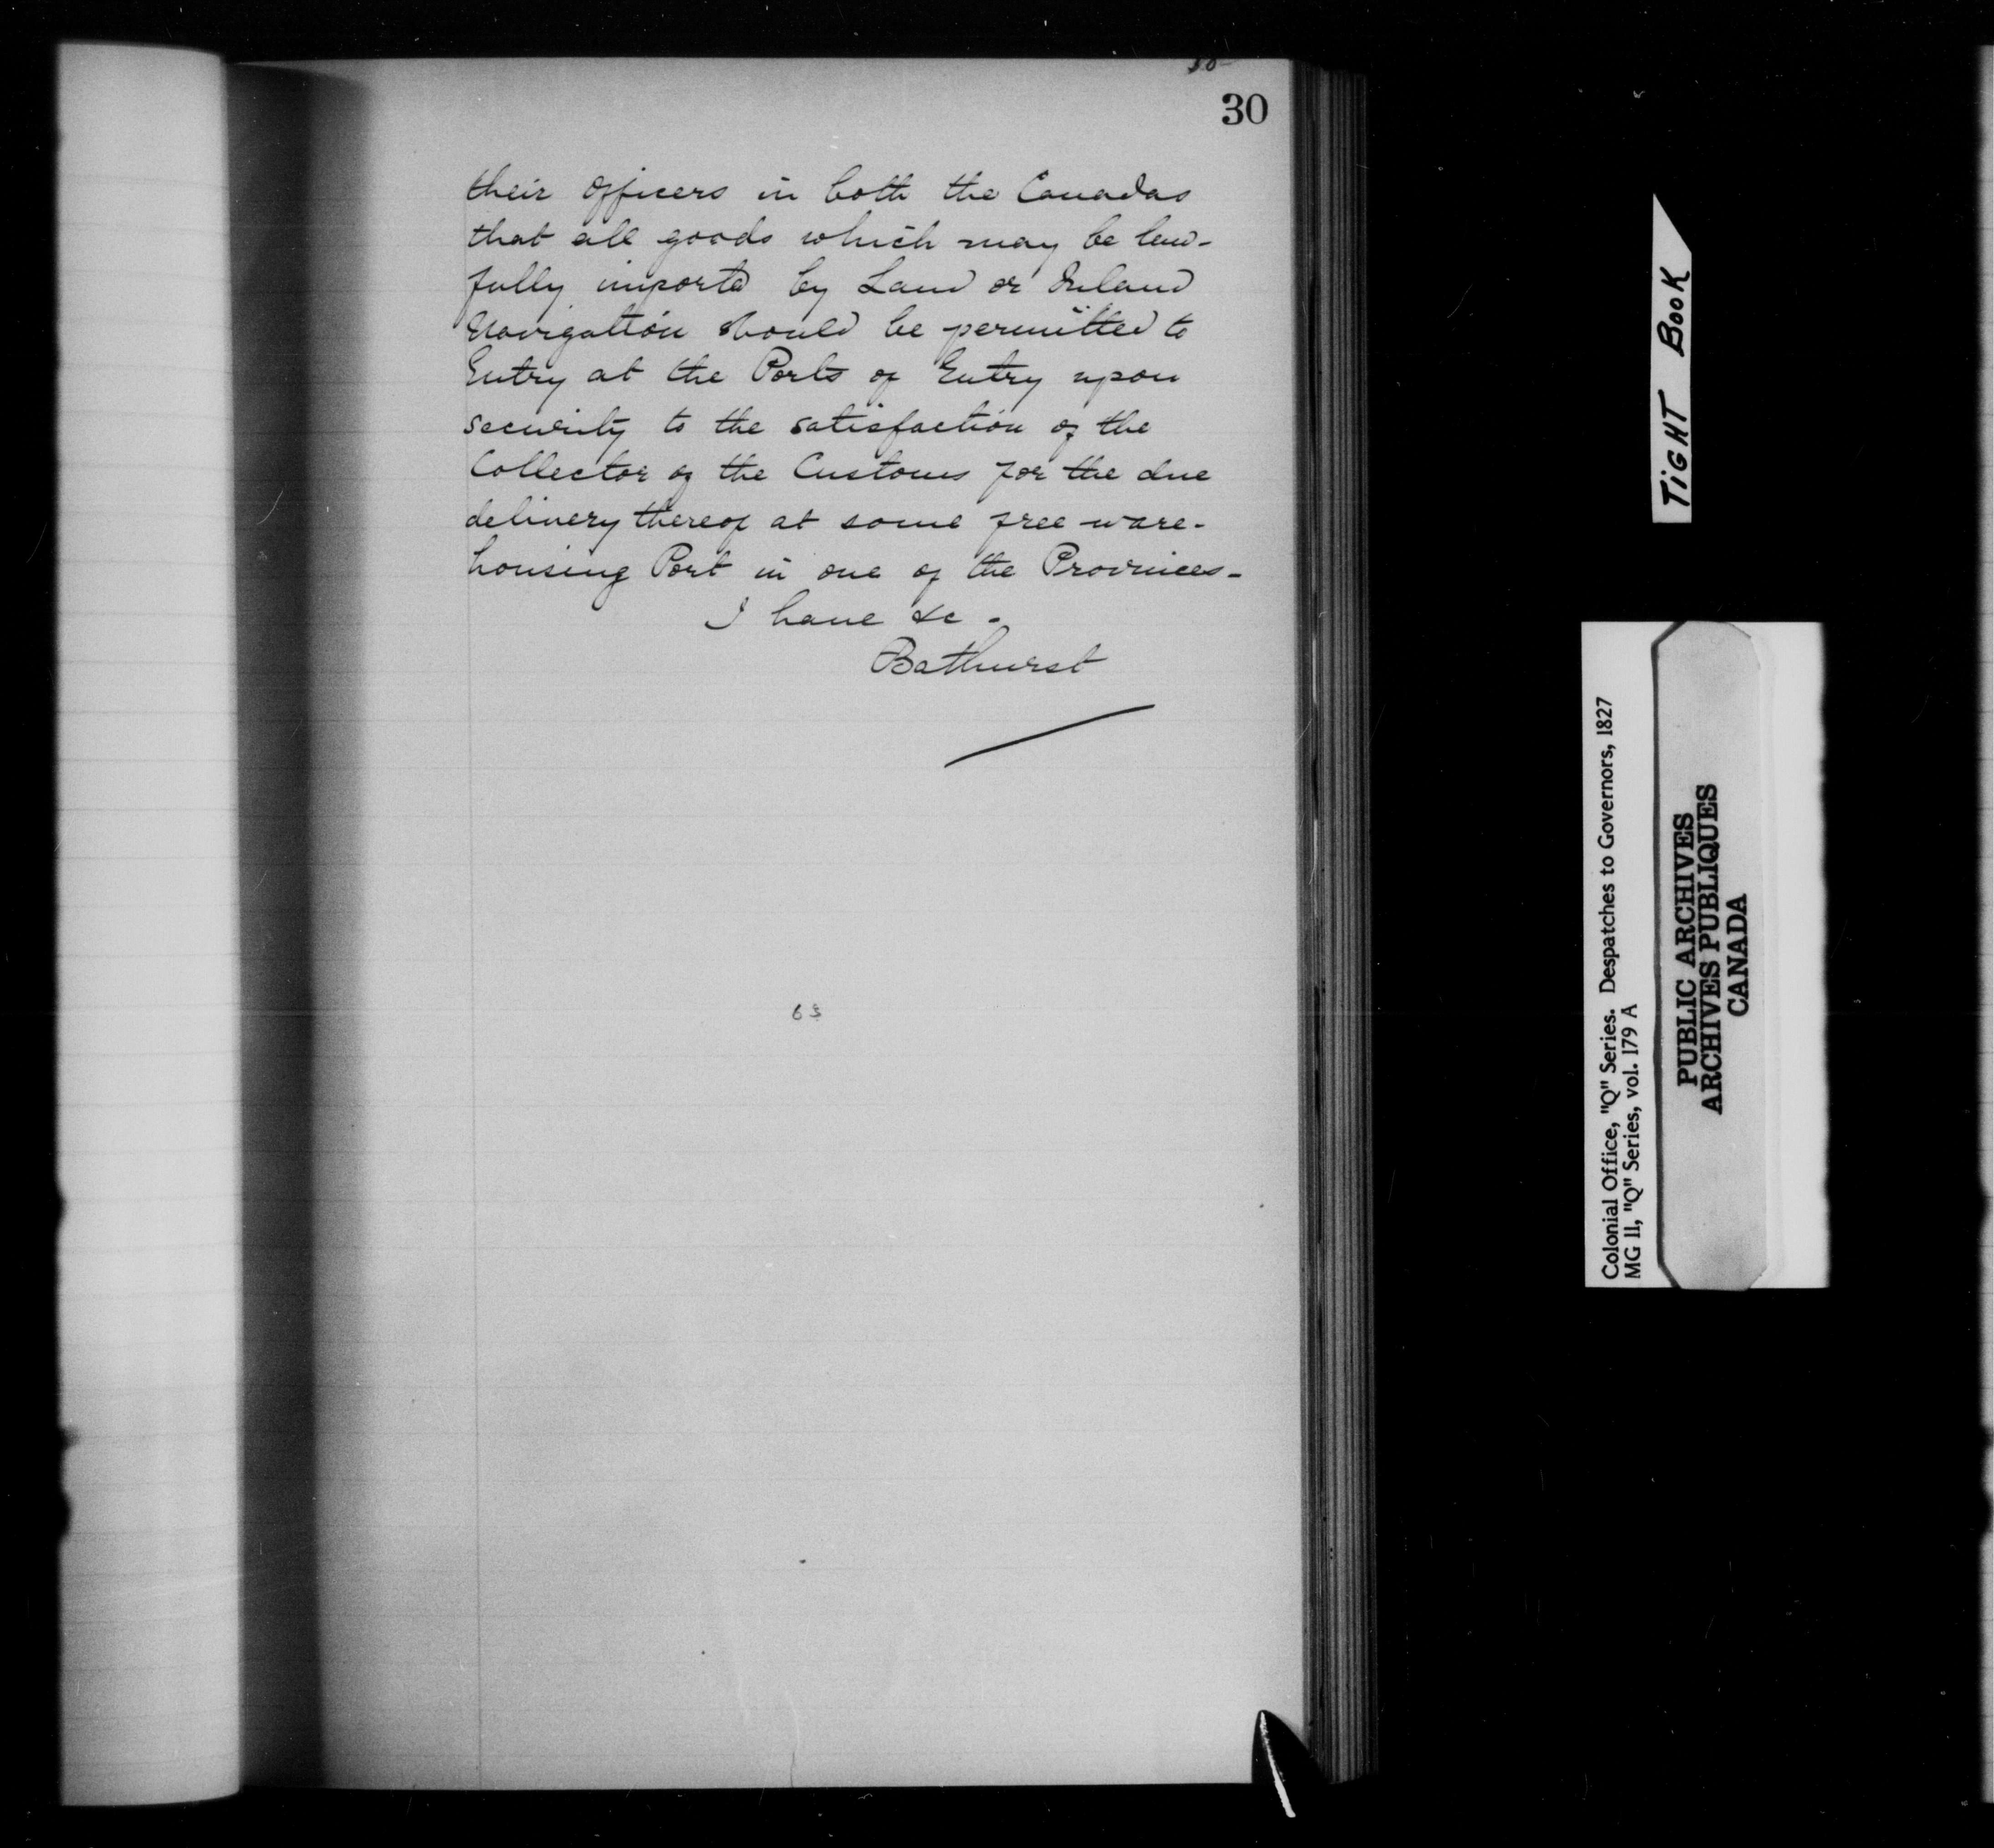 30
their officers in both the Canadas
that all goods which may be law-
fully importd by Land or Inland
Navigation should be permitted to
Entry at the Ports of Entry upon
security to the satisfaction of the
Collector of the Customs for the due
delivery thereof at some free ware-
housing Port in one of the Provinces -
I have &c -
Bathurst
63
TIGHT BOOK
Colonial Office, "Q" Series. Despatches to Governors, 1827
MG 11, "Q" Series, vol. 179 A
PUBLIC ARCHIVES
ARCHIVES PUBLIQUES
CANADA